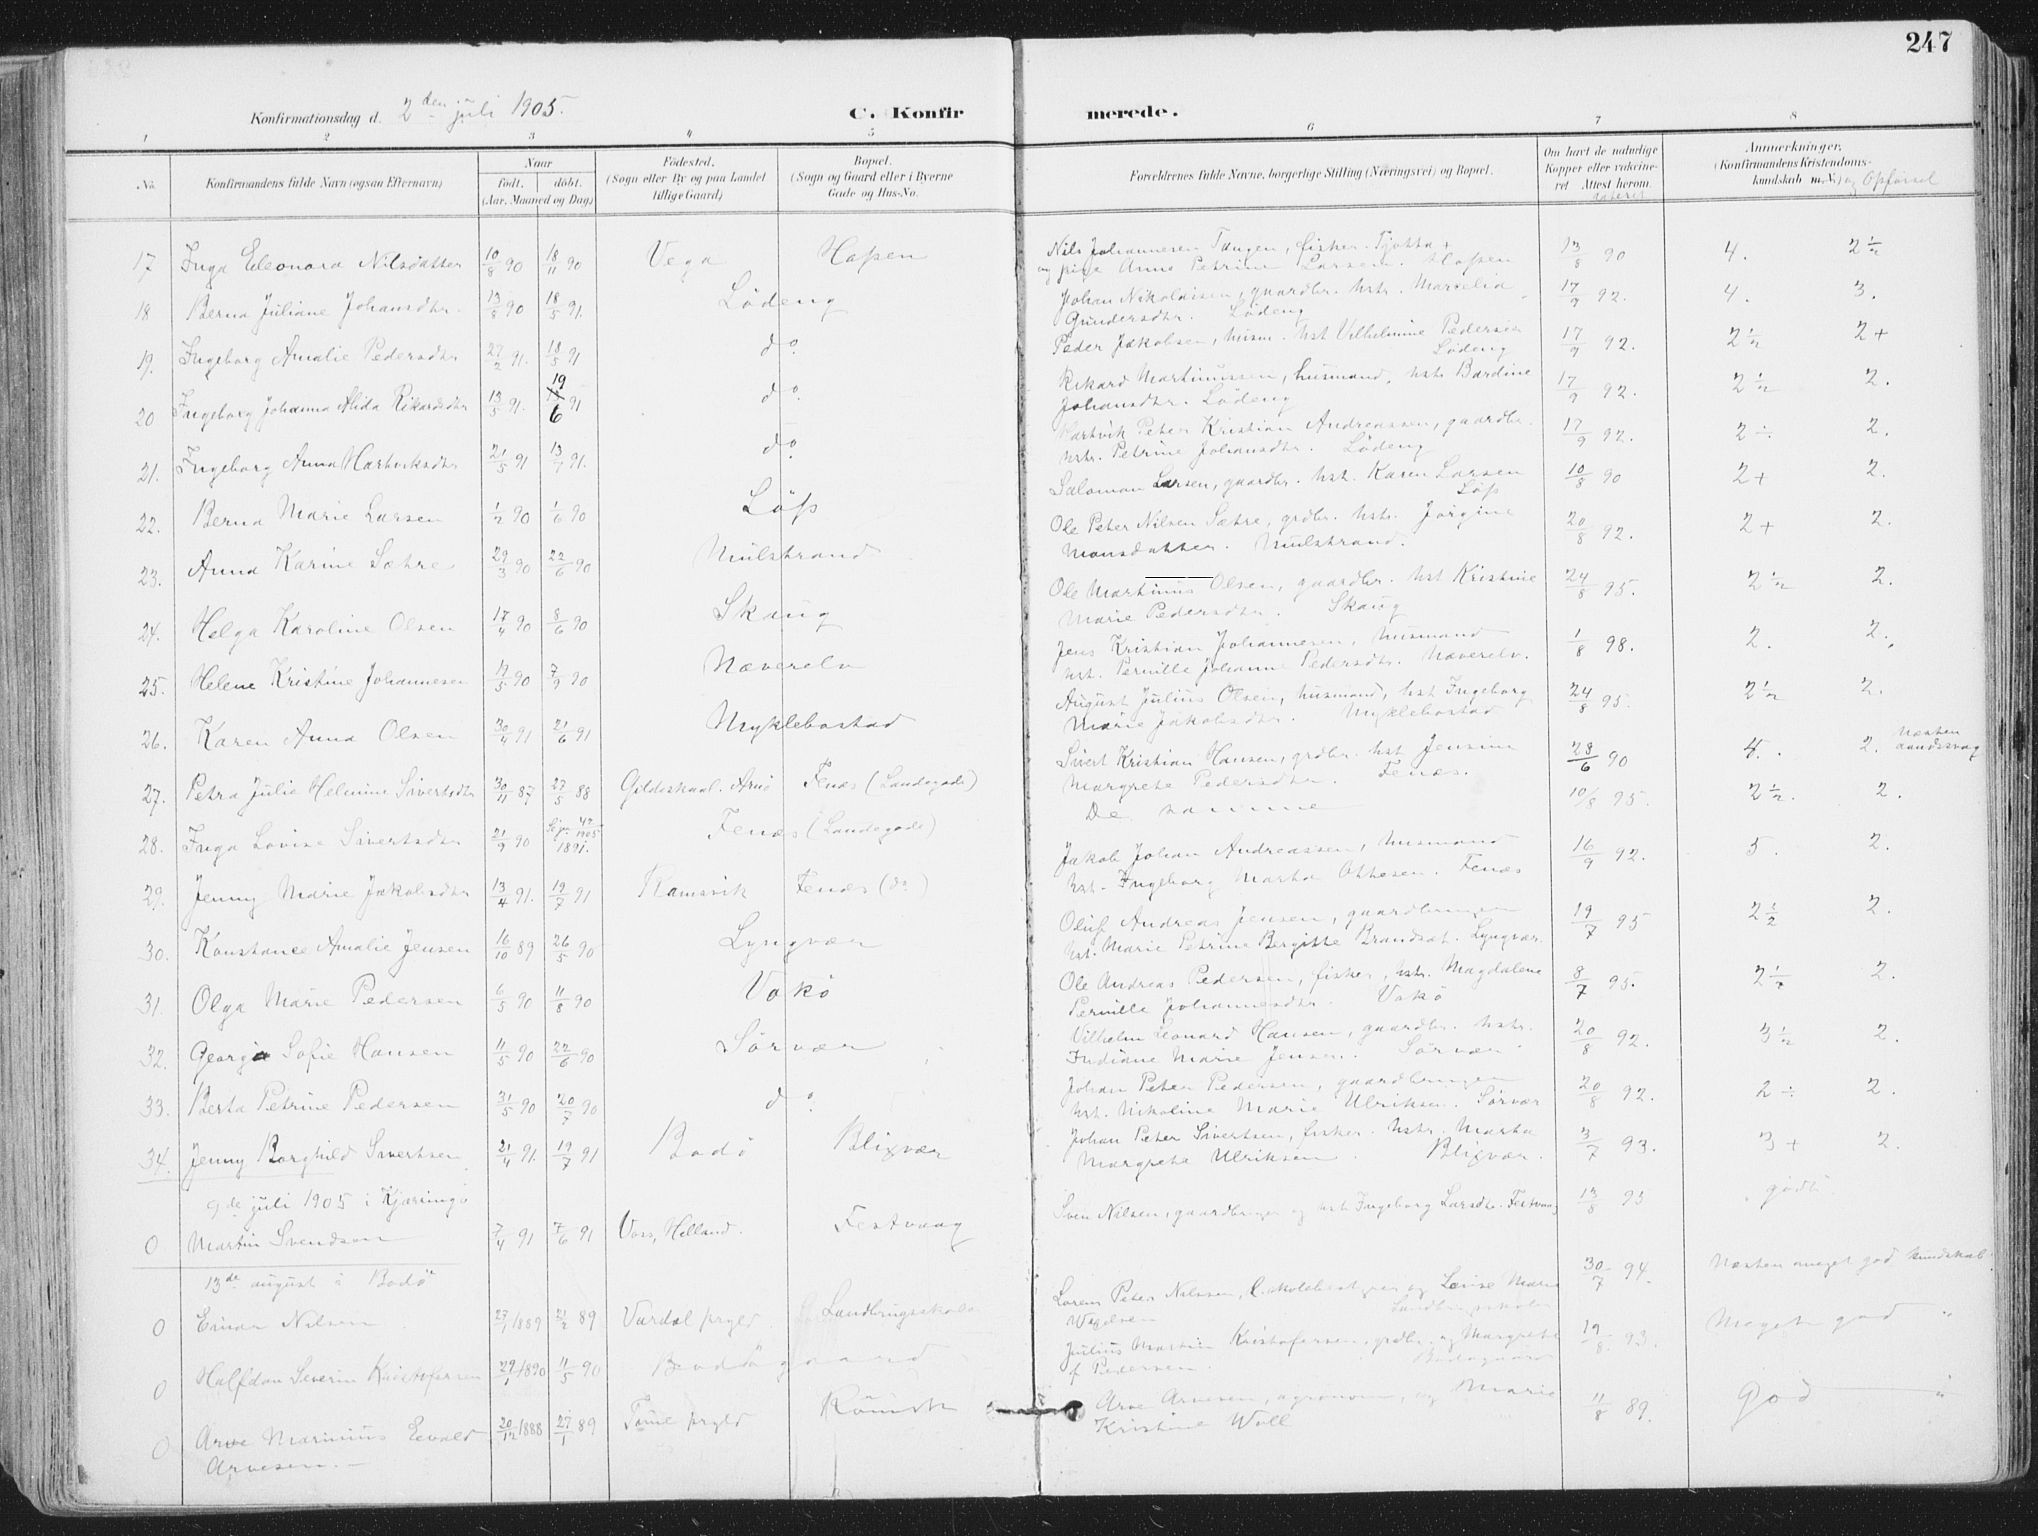 247
Konfirmationsdag d. 2den juli 1905.
C. Konfir merede.
1 2 3 4 5 6 7 8
No. Konfirmandens fulde Navn (ogsaa Efternavn) Naar født. døbt. (Aar, Maaned og Dag) Fødested. (Sogn eller By og paa Landet tillige Gaard) Bopæl. (Sogn og Gaard eller i Byerne Gade og Hus-No. Forældrenes fulde Navne, borgerlige Stilling (Næringsvei) og Bopæl. Om havt de naturlige Kopper eller vakcineret. Attest herom dateret Anmærkninger, (Konfirmandens Kristendomskundskab m.V.) og Opførsel
17 Inga Eleonora Nilsdatter 10/8 90 18/11 90 Vega Hopen Nils Johannesen Tangen, fisker Tjøtta +
og pige Anne Petrine Larsen. Hopen 13/8 90 4. 2 1/2
18 Berna Juliane Johansdtr. 13/8 90 18/5 91. Lødeng Johan Nikolaisen, gaardbr. hstr. Marselia
Gundersdtr. Lødeng 17/9 92. 4. 3.
19. Ingeborg Amalie Pedersdtr 27/2 91. 18/5 91 do. Peder Jakobsen, husm. hst Vilhelmine Pedersen
Lødeng 17/9 92. 2 1/2 2+
20 Ingeborg Johanna Alida Rikardsdtr 13/5 91. 19/6 91 do. Rikard Martinussen, husmand, hstr Bardine
Johansdtr. Lødeng 17/9 92. 2 1/2 2.
21. Ingeborg Anna Hartviksdtr 21/5 91 13/7 91. do. Hartvik Peter Kristian Andreassen, gaardbr.
hstr. Petrine Johansdtr. Lødeng 17/9 92. 2 ÷ 2.
22. Berna Marie Larsen 1/2 90 1/6 90 Løp Salomon Larsen, gaardbr. hst. Karen Larsen
Løp 10/8 90 2+ 2.
23. Anna Karine Sætre 29/3 90 22/6 90 Mulstrand Ole Peter Nilsen Sætre, grdbr. hstr. Jørgine
Monsdatter. Mulstrand. 20/8 92. 2+ 2.
24. Helga Karoline Olsen 17/4 90 8/6 90 Skaug Ole Martinius Olsen, gaardbr. hst Kristine
Marie Pedersdtr. Skaug 24/8 95. 2 1/2 2.
25. Helene Kristine Johannesen 19/5 90 7/9 90 Næverelv Jens Kristian Johannesen, husmand
hst. Pernille Johanne Pedersdtr. Næverelv. 1/8 98. 2. 2.
26. Karen Anna Olsen 30/4 91 21/6 91 Myklebostad August Julius Olsen, husmand, hst Ingeborg
Marie Jakobsdtr. Myklebostad 24/8 95. 2 1/2 2.
27. Petra Julie Helmine Sivertsdtr 30/11 87 27/5 88 Gildeskaal. Arnø Fenes (Landegode) Sivert Kristian Hansen, grdbr. hst Jensine
Margrete Pedersdtr. Fenes. 28/6 90 4. 2. Næsten aandssvag
28. Inga Lovise Sivertsdtr 21/9 90 1891. Fenes (Landegode) De samme 10/8 95. 2 1/2. 2.
29. Jenny Marie Jakobsdtr 13/4 91. 19/7 91 Ramsvik Fenes (do) Jakob Johan Andreassen, husmand
hst. Ingeborg Marta Ottesen. Fenes 16/9 92. 5. 2.
30. Konstance Amalie Jensen 16/10 89 26/5 90 Lyngvær Oluf Andreas Jensen, gaardbruger
hst. Marie Petrine Bergitte Brandsæt. Lyngvær 19/7 95 2 1/2 2.
31. Olga Marie Pedersen 6/5 90 11/8 90 Vokø Ole Andreas Pedersen, fisker, hstr. Magdalene
Pernille Johannesdtr. Vokø 8/7 95. 2 1/2 2.
32. Georga Sofie Hansen 11/5 90 22/6 90 Sørvær Vilhelm Leonard Hansen, gaardbr. hstr.
Indiane Marie Jensen. Sørvær 20/8 92. 3 1/2 2.
33. Berta Petrine Pedersen 31/5 90 20/7 90 do. Johan Peter Pedersen, gaardbruger
hst. Nikoline Marie Ulriksen. Sørvær 20/8 92. 2 ÷ 2.
34. Jenny Borghild Sivertsen 21/4 91. 19/7 91 Bodø Blixvær Johan Peter Sivertsen, fisker. hstr. Marta
Margrete Ulriksen. Blixvær. 3/7 93. 3+ 2.
9de juli 1905 i Kjerringø
0 Martin Svendsen 7/4 91 7/6 91 Voss, Helland. Festvaag Sven Nilsen, gaardbruger og hstr Ingeborg Larsdtr. Festvaag 13/8 95 godt
13de august i Bodø
0 Einar Nilsen 27/1 1889 21/2 89 Vardal prgld. Landbrugsskole Lorens Peter Nilssen, og Lovise Marie
30/7 94. Næsten meget god kundskab.
0 Halfdan Severin Kristofersen 29/1 1890 11/5 90 Bodøgaard Julius Martin Kristofersen, grdbr. og Margrete
f Pedersen. Bodøgaard 19/8 93. Meget god "
0 Arve Marinius Eevald
Arvesen. 20/12 1888 27/1 89 prgld Rønvik Arve Arvesen, agronom, og Marie
Kristine Woll 11/8 89. God "